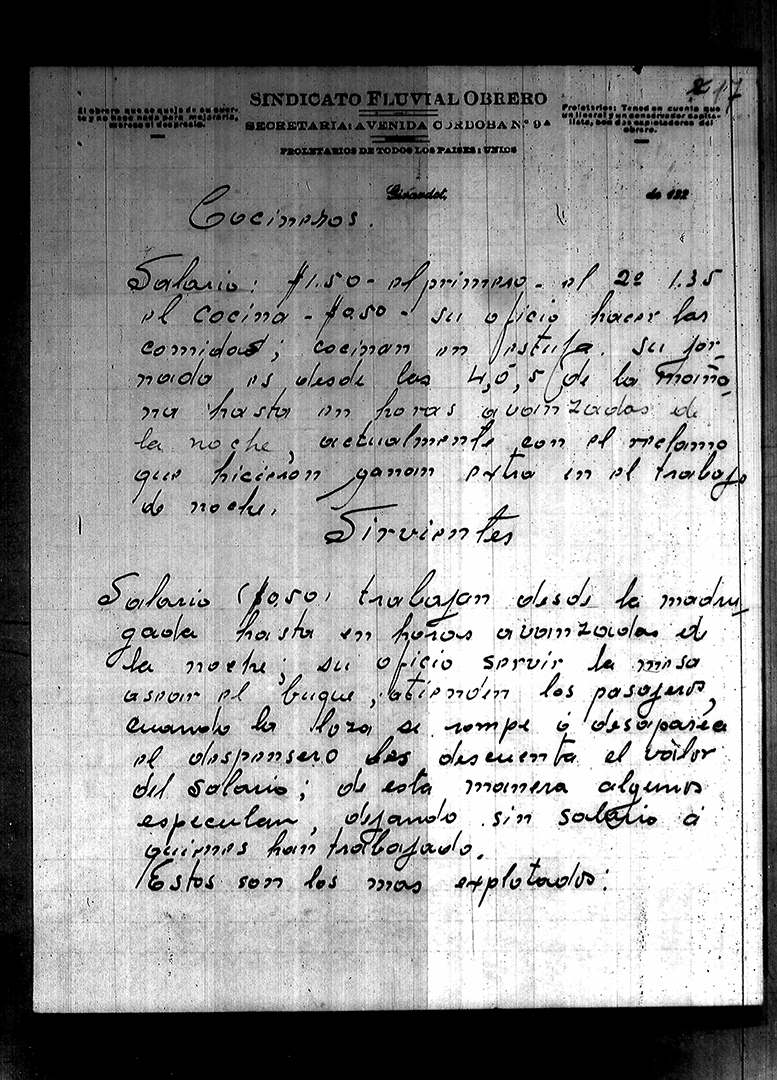 217
SINDICATO FLUVIAL OBRERO
SECRETARIA: AVENIDA CORDOBA Nº 9ª
PROLETARIOS DE TODOS LOS PAISES: UNIOS
El obrero que se queja de su suer-
te y no hace nada para mejorarla,
merece el desprecio.
Proletarios: Tened en cuenta que
un liberal y un conservador capita-
lista, son dos explotadores del
obrero.
Girardot, de 192
Cocineros.
Salario: $1.50 - el primero - el 2º 1.35
el cocina - $0.50 - su oficio hacer las
comidas; cocinan en estufa. su jor-
nada es desde las 4, ó, 5 de la maña
na hasta en horas avanzadas de
la noche, actualmente con el reclamo
que hicieron ganan extra en el trabajo
de noche.
Sirvientes
Salario ($0.50) trabajan desde la madru-
gada hasta en horas avanzadas de
la noche; su oficio servir la mesa
asear el buque, atienden los pasajeros,
cuando la loza se rompe ó desaparéa
el despensero les descuenta el valor
del salario; de esta manera algunos
especulan, dejando sin salario á
quienes han trabajado.
Estos son los mas explotados: